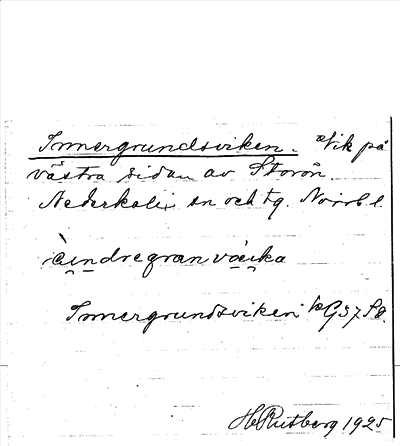 Innergrundsviken. Vik på
västra sidan av Storön.
Nederkalix sn och tg. Norrb. l.
Innergrundsviken
H. Rutberg 1925